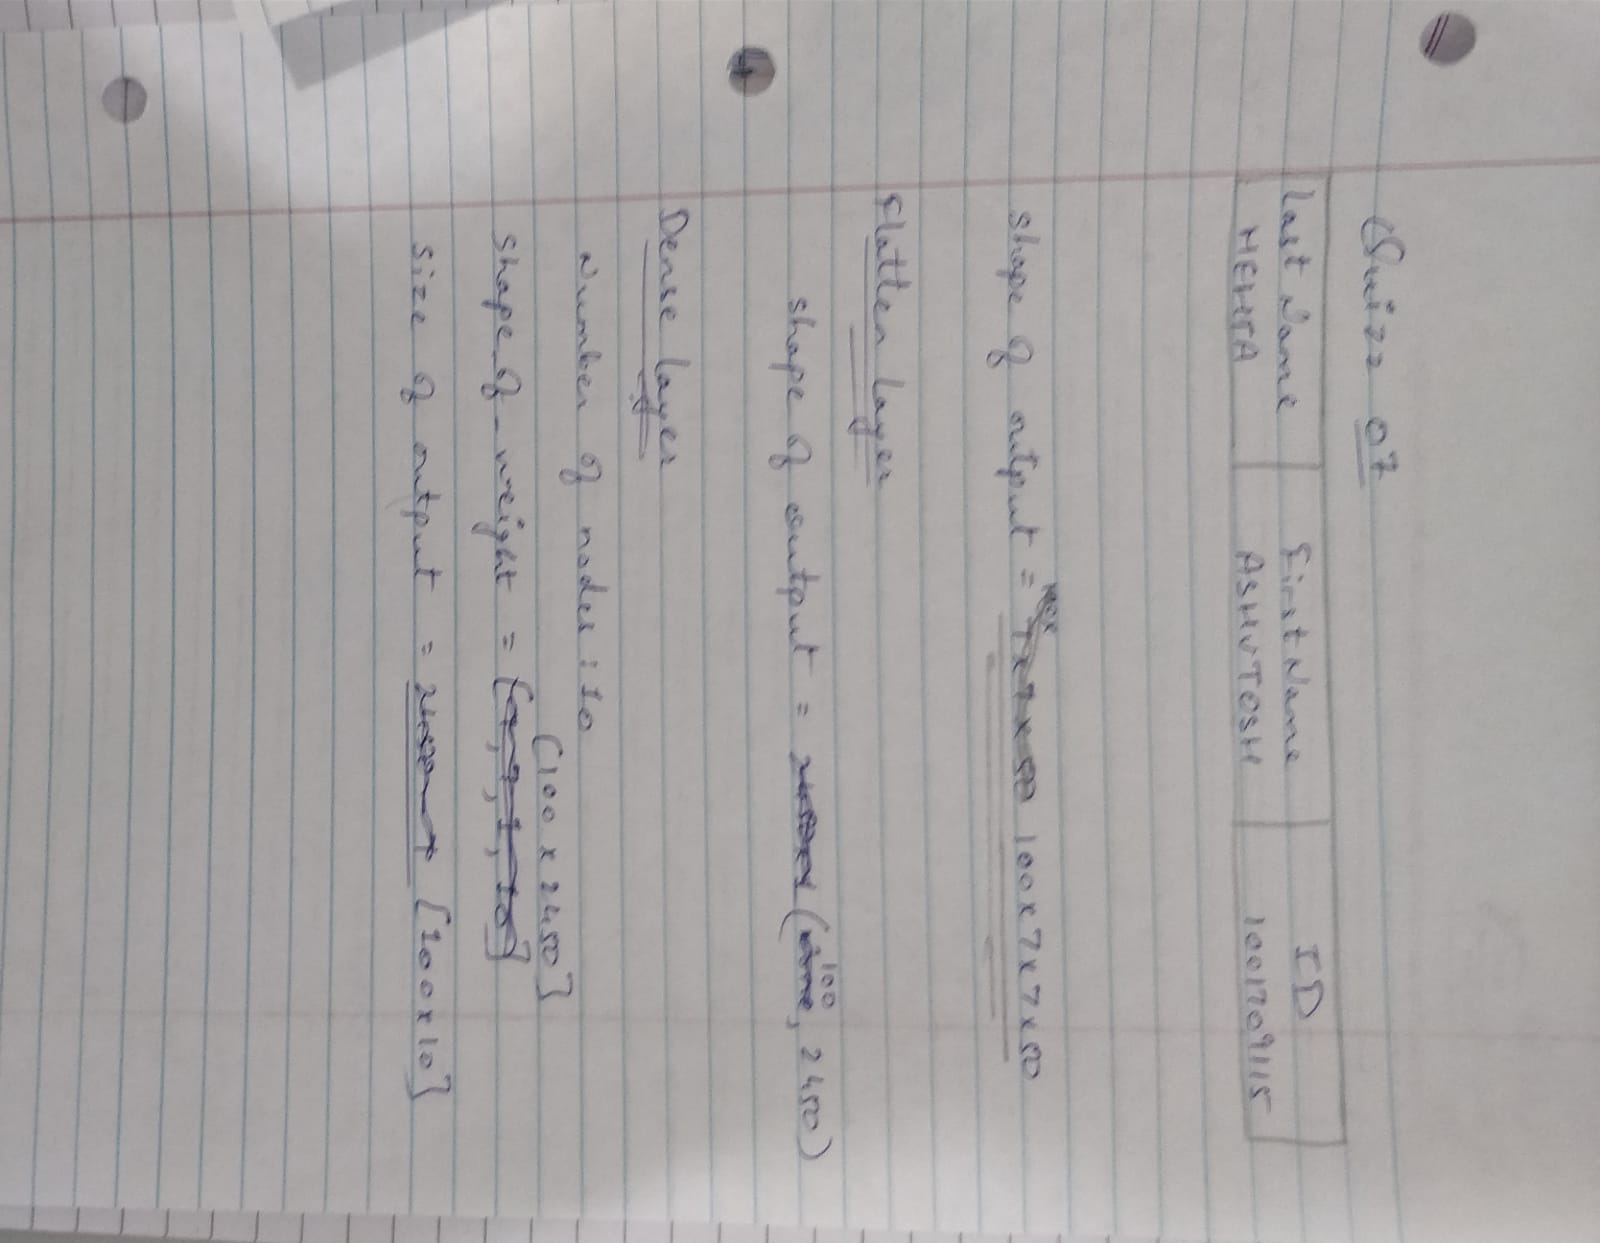 Quizz 07
Last Name First Name ID
MEHTA ASHUTOSH 1001709115
shape of output = 7x7x50 100x7x7x50
Flatten Layer
shape of output = (100, 2450)
Dense layer
Number of nodes : 10
[100 x 2450]
shape of weight = [7, 7, 1, 10]
size of output = [100x10]